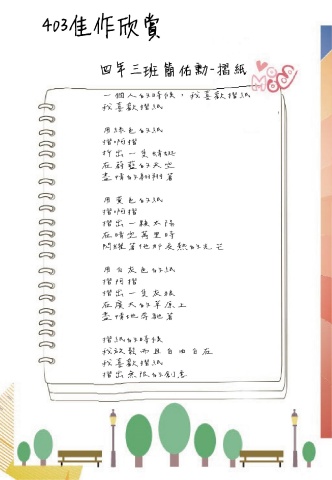 403佳作欣賞
四年三班簡佑勳-摺紙
MOCOS
一個人的時候,我喜歡摺紙
我喜歡摺紙
用綠色的紙
摺啊摺
摺出一隻蜻蜓
在蔚藍的天空
盡情的翱翔著
用黃色的紙
摺啊摺
摺出一顆太陽
在晴空萬里時
閃耀著他那炙熱的光芒
用白灰色的紙
摺啊摺
摺出一隻灰狼
在廣大的草原上
盡情地奔馳著
摺紙的時候
我放鬆而且自由自在
我喜歡摺紙
摺出無限的創意